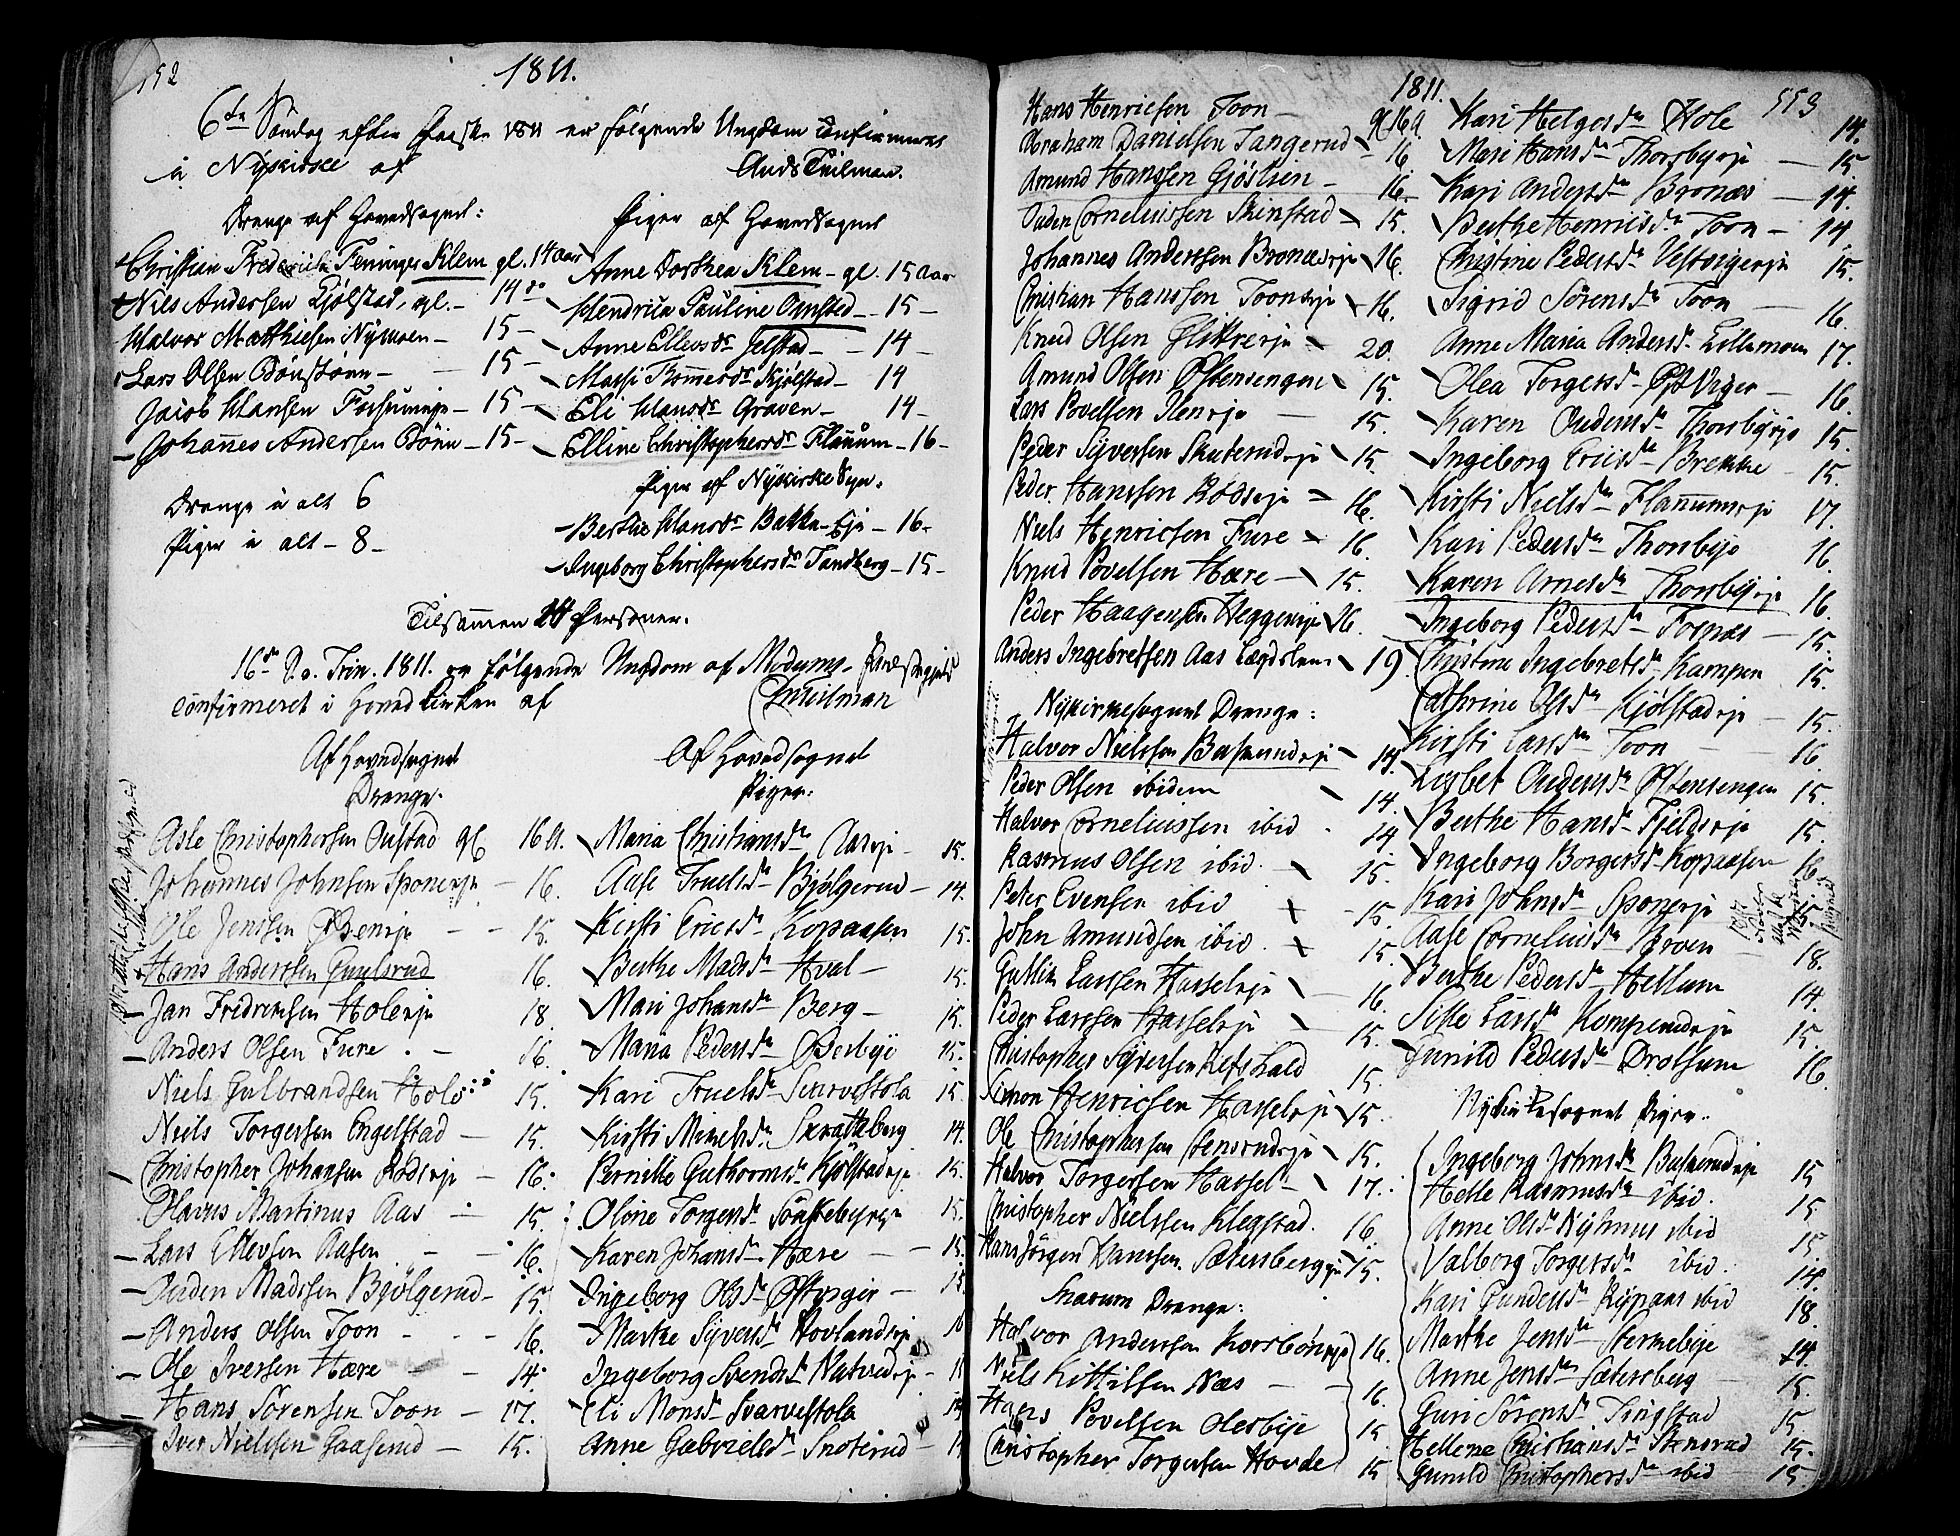 552
1811.
6te Søndag efter Paaske 1811 er følgende Ungdom confirmeret
i Nykirke af
And: Tuilman.
Drenge af Hovedsognet:
Christian Frederich Feninger Klem gl. 14 aar
Niels Andersen Kjølstad, gl. 14 do
Halvor Mathiesen Nymoen 15
Lars Olsen Bønstønn 15
Jacob Hansen Forsumeje 15
Johannes Andersen Bønn 15
Drenge i alt 6
Piger i alt 8
Piger af Hovedsognet
Anne Dorthea Klem gl. 15 aar
Hendrica Pauline Omsted 15
Anne Ellevsdr Gjelstad 14
Marthe Tommesdr Kjølstad 14
Eli Hansdr Graven 14
Elline Christophersdr Flannum 16
Piger af Nykirke Sogn.
Berthe Hansdr Bakke Eje 16
Ingeborg Christophersdr Sandberg 15
Tilsammen 14 Personer.
16de S. e. Trin. 1811 er følgende Ungdom af Modums Præstegjeld
confirmeret i Hovedkirken af
Tuilman
Af Hovedsognet
Drenge:
Asle Christophersen Ovstad gl 16 A.
Johannes Johnsen Sponeje 16.
Ole Jenssen Øbeneje 15.
Hans Anderssen Gunlsrud 16.
Jan Fredrichsen Holeeje 18.
Anders Olsen Fure 16.
Niels Gulbrandsen Hole 15.
Niels Torgersen Engelstad 15.
Christopher Johansen Rødseje 16.
Olaves Martinus Aas 15.
Lars Ellevsen Aasen 16.
Ouden Madssen Bjølgerud 15.
Anders Olsen Toon 16.
Ole Iversen Hære 14.
Hans Sørensen Toon 17.
Iver Nielsen Gaaserud 15.
Af Hovedsognet
Piger:
Maria Christiansdr Aaseje 15.
Aase Truelsdr Bjølgerud 14.
Kirsti Ericsdr Kopaasen 15.
Berthe Madsdr Hval 15.
Mari Johansdr Berg 15.
Maria Pedersdr Berbye 15.
Kari Truelsdr Skarvestola 15.
Kirsti Michelsdr Skratteberg 14.
Pernille Guthormsdr Kjølstadeje 15.
Oline Torgersdr Taaskebyeje 15.
Karen Johansdr Hære 15.
Ingeborg Olsdr Østviger 15
Marthe Syversdr Hovlandseje 16
Ingeborg Svendsdr Natvedeje
Eli Monsdr Svarvestola
Anne Gabrielsdr Snoterud
1811.
553
Hans Henricsen Toon gl 16 a
Abraham Danielsen Tangerud 16
Amund Hanssen Gjøslien 16.
Ouden Corneliussen Skinstad 15.
Johannes Anderssen Bronæseje 16.
Christian Hanssen Tooneje 16.
Knud Olsen Flittreeje 20.
Amund Olsen Østensengen 15.
Lars Povelsen Steneje 15.
Peder Syversen Skuterudeje 15.
Peder Hanssen Rødseje 16.
Niels Henricsen Fure 16.
Knud Povelsen Hære 15.
Peder Haagensen Heggeneje 16.
Anders Ingebretsen Aas Lægdslem 19.
Nykirkesognet Drenge:
Halvor Nielssen Buskerudeje 14.
Peder Olsen ibidem 14.
Halvor Corneliussen ibid 14.
Rasmus Olsen ibid. 15.
Peter Evensen ibid 15.
John Amundsen ibid. 15.
Gullik Larssen Hasseleje 16.
Peder Larssen Hasseleje 15.
Christopher Syversen Kleftald 15.
Simon Henricsen Hasseleje 15.
Ole Christophersen Stensrudeje 15.
Halvor Torgersen Hassel 17.
Christopher Nielssen Klegstad. 16.
Hans Jörgen Hanssen Sætersbergeje 15.
Snarum Drenge:
Halvor Anderssen Korsbøneje 16.
Niels Kittilsen Næs 16
Hans Povelsen Olesbye 15
Christopher Torgersen Hovde 15
Kari Helgesdr Hole 14.
Mari Hansdr Thorsbyeje 15.
Kari Andersdr Bronæs 14.
Berthe Henricsdr Toon 14
Christine Pedersdr Vestvigereje 15.
Sigrid Sørensdr Toon 16.
Anne Maria Andersdr Lillemoen 17.
Olea Torgersdr Østviger 16.
Karen Oudensdr Thorsbyeje 15.
Ingeborg Ericsdr Brekke 15.
Kirsti Nielsdr Flannumseje 17.
Kari Pedersdr Thorsbye 16.
Karen Arnesdr Thorsbyeje 16.
Ingeborg Pedersdr Fornæs 15.
Christine Ingebretsdr Kampen 15.
Cathrine Olsdr Kjølstadeje 15.
Kirsti Larsdr Toon 16.
Lisbet Oudensdr Østensengen 15.
Berthe Hansdr Fieldseje 15.
Ingeborg Borgersdr Kopaasen 16
Kari Johnsdr Sponeeje 15
Aase Corneliusdr Broven 18.
Berthe Pedersdr Hellum 14.
Sille Larsdr Komperudeje 15.
Gunild Pedersdr Drolsum 16.
Nykirkesognet Piger.
Ingeborg Johnsdr Buskerudeje 15
Helle Rasmusdr ibid. 15
Anne Olsdr Nyhuus ibid 15.
Valborg Torgersdr ibid. 14.
Kari Gundersdr Rypaas ibid 18.
Marthe Jensdr Stermebye 14.
Anne Jensdr Sætersberg 15.
Guri Sörensdr Tingstad 15
Hellene Christiansdr Stensrud 15.
Gunild Christophersdr ibid 15.